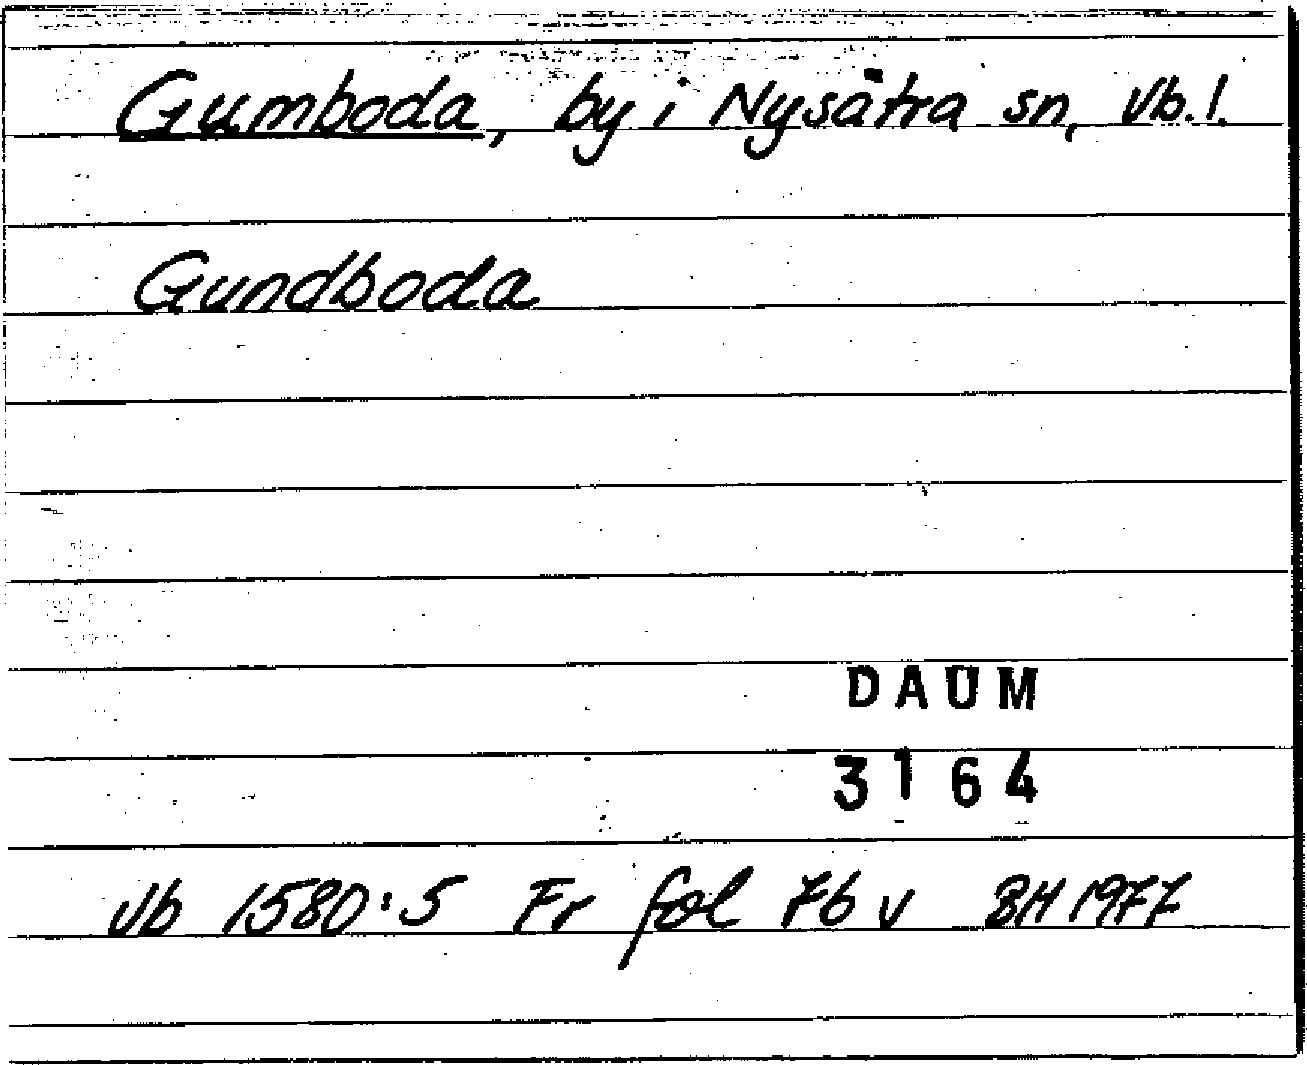 Gumboda, by i Nysätra sn, Vb.l.
Gundboda
DAUM
3164
Vb 1580:5 Fr fol 76 v BH 1977